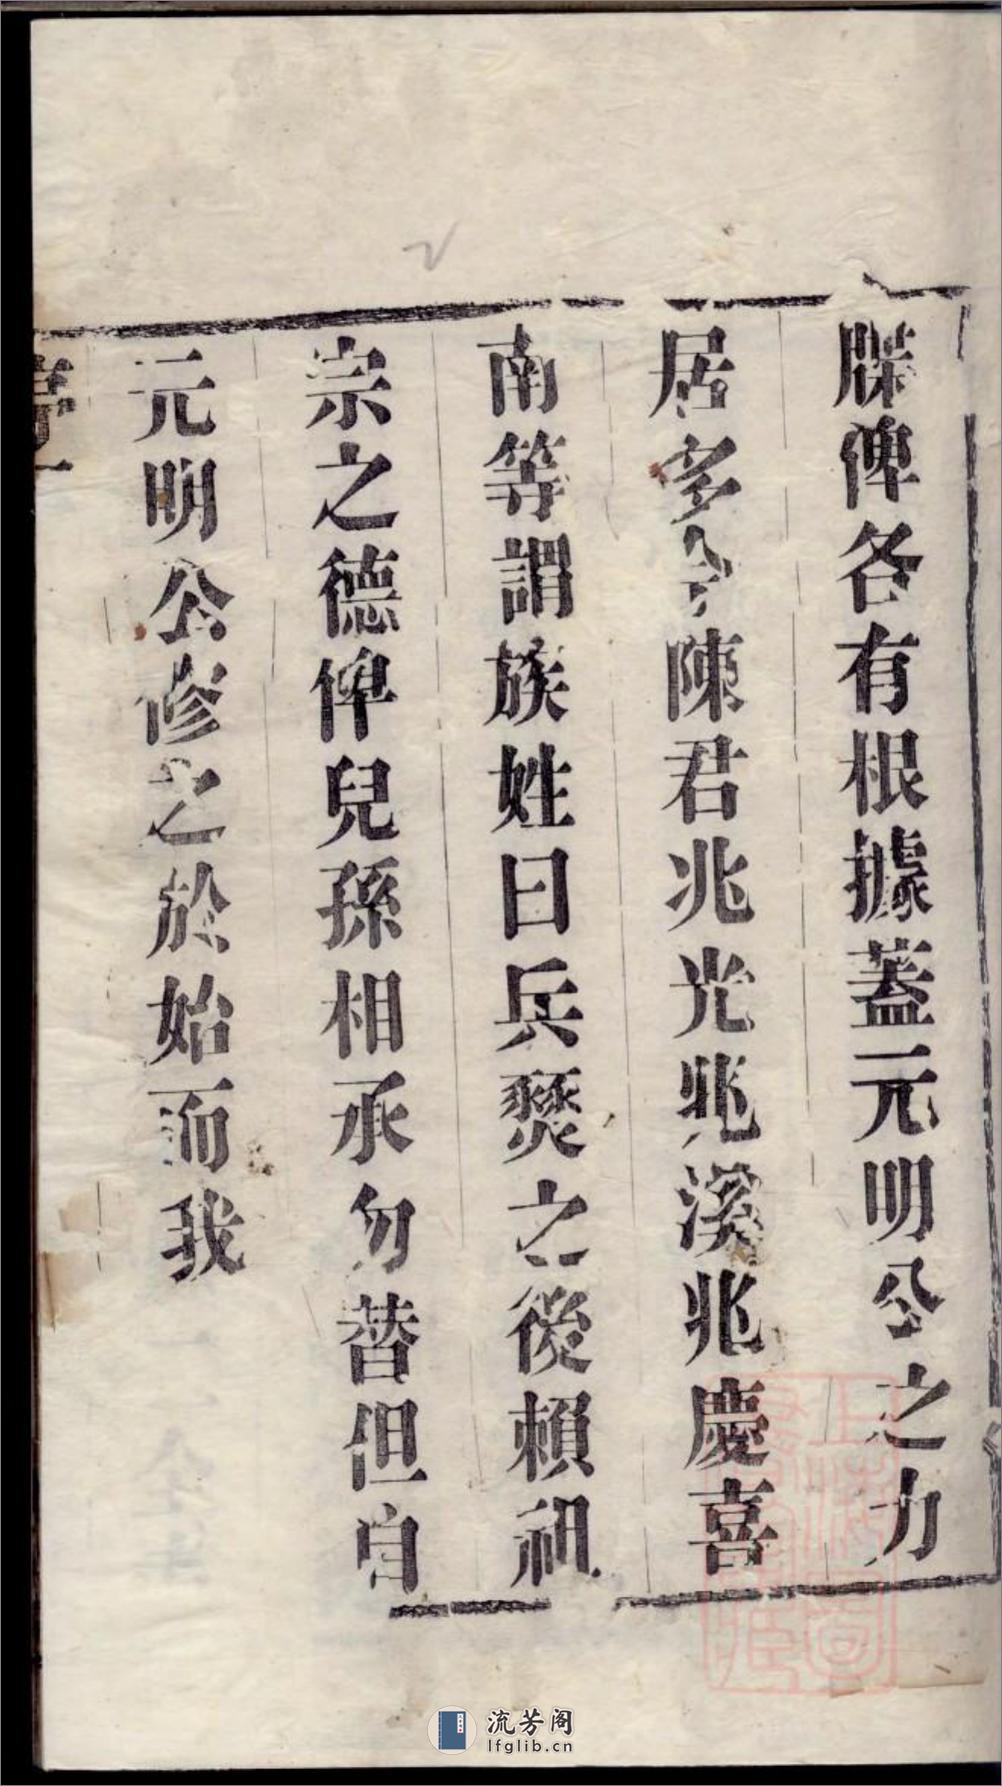 牒俾各有根據蓋元明公之力
居多今陳君兆光兆兆溪兆慶喜
南等謂族姓曰兵燹之後賴祖
宗之德俾兒孫相承勿替但自
元明公修之於始而我
流芳阁
lfglib.cn